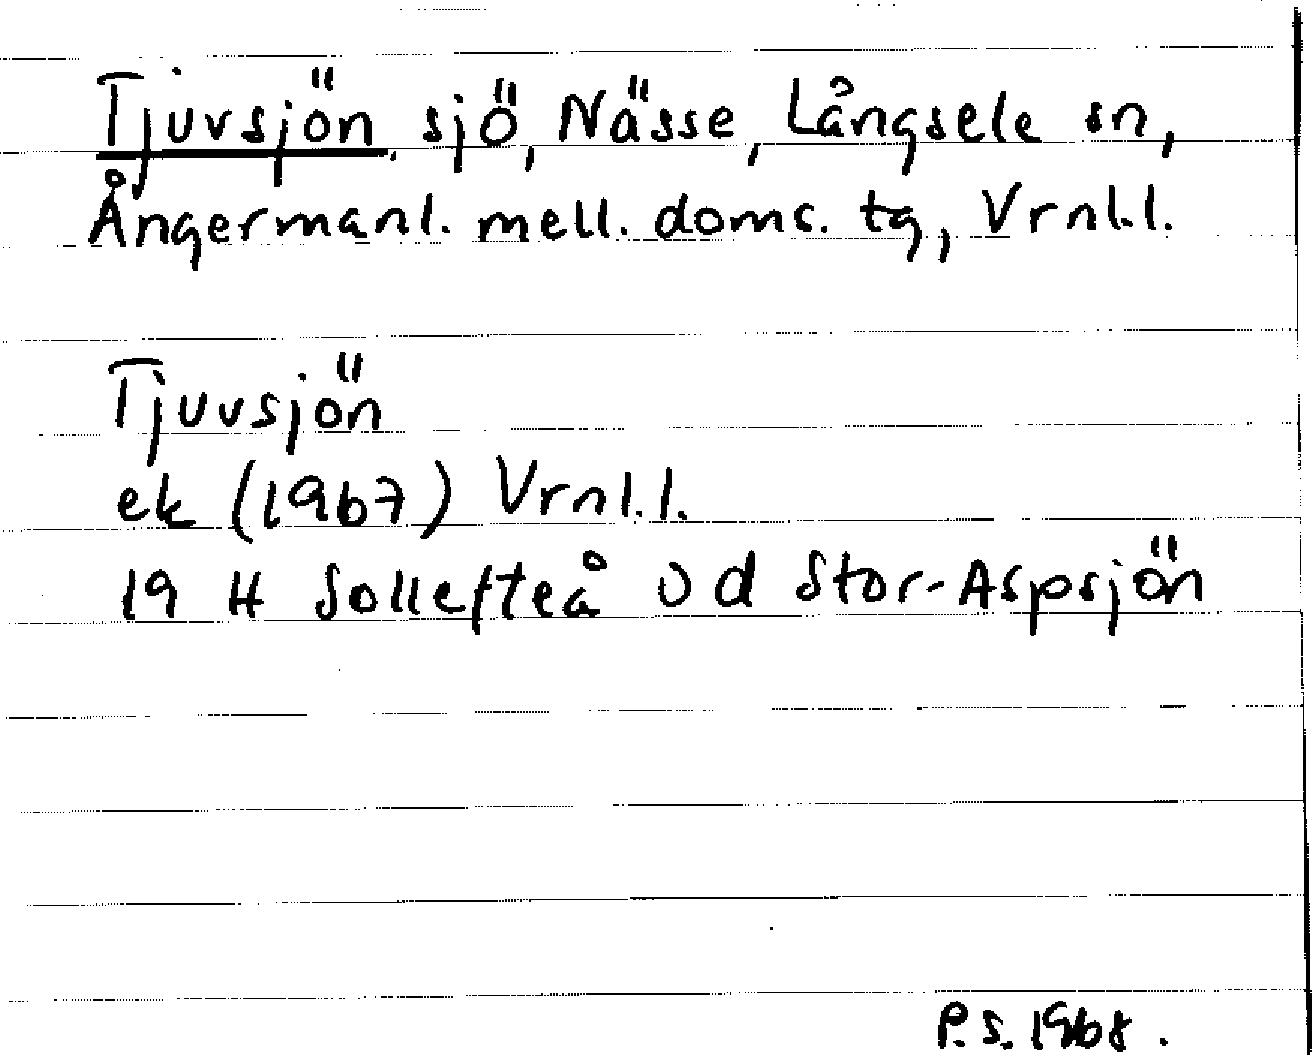 Tjuvsjön, sjö, Nässe, Långsele sn,
Ångermanl. mell. doms. tg, Vrnl.l.
Tjuvsjön
ek (1967) Vrnl.l.
19 H Sollefteå Od Stor-Aspsjön
P.S. 1968.